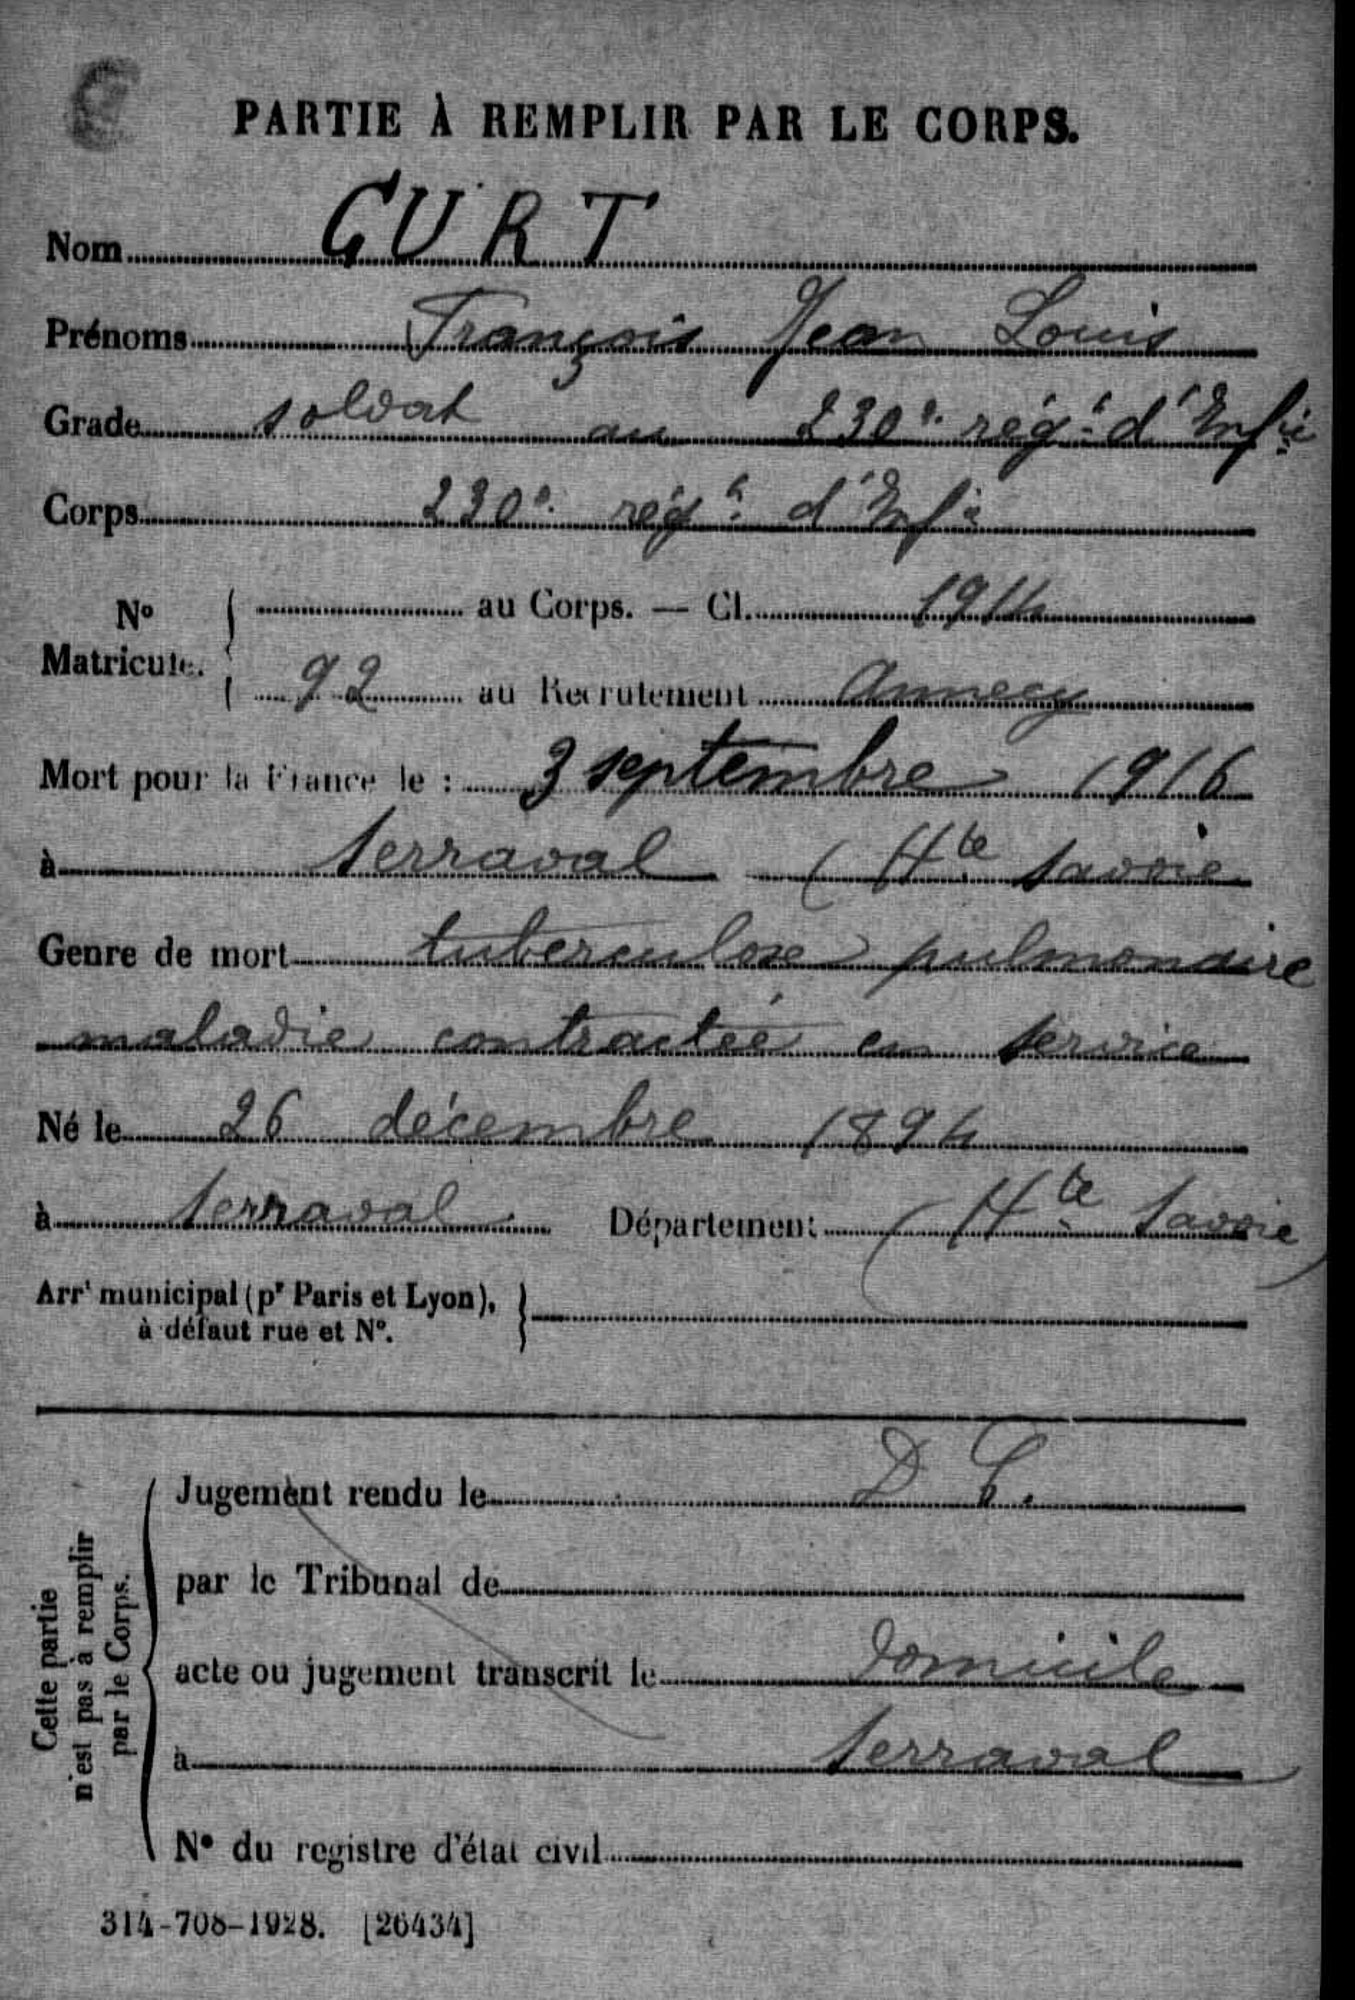 PARTIE À REMPLIR PAR LE CORPS.
Nom GURT
Prénoms François Jean Louis
Grade soldat au 230e régt d'Infie
Corps 230e régt d'Infie
No Matricule. { au Corps. — Cl. 1914
92 au Recrutement Annecy
Mort pour la France le : 3 septembre 1916
à Serraval (Hte Savoie
Genre de mort tuberculose pulmonaire
maladie contractée en service
Né le 26 décembre 1894
à Serraval Département (Hte Savoie)
Arrt municipal (pr Paris et Lyon),
à défaut rue et No.
Cette partie
n'est pas à remplir
par le Corps.
Jugement rendu le D C.
par le Tribunal de
acte ou jugement transcrit le Domicile
à Serraval
No du registre d'état civil
314-708-1928. [26434]